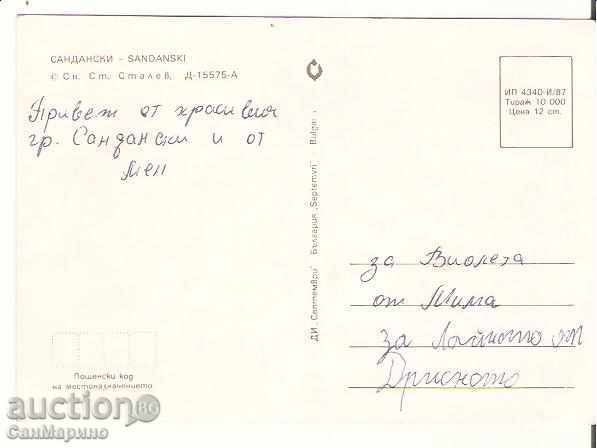 САНДАНСКИ – SANDANSKI
© Сн. Ст. Сталев, Д-15575-А
Привет от красивия
гр. Сандански и от
мен
ИП 4340-И/87
Тираж 10 000
Цена 12 ст.
ДИ „Септември" България „Septemvri" Bulgaria
за Виолета
от Мима
за Лайното от
Дрисното
Пощенски код
на местоназначението
auction BG
СанМарино